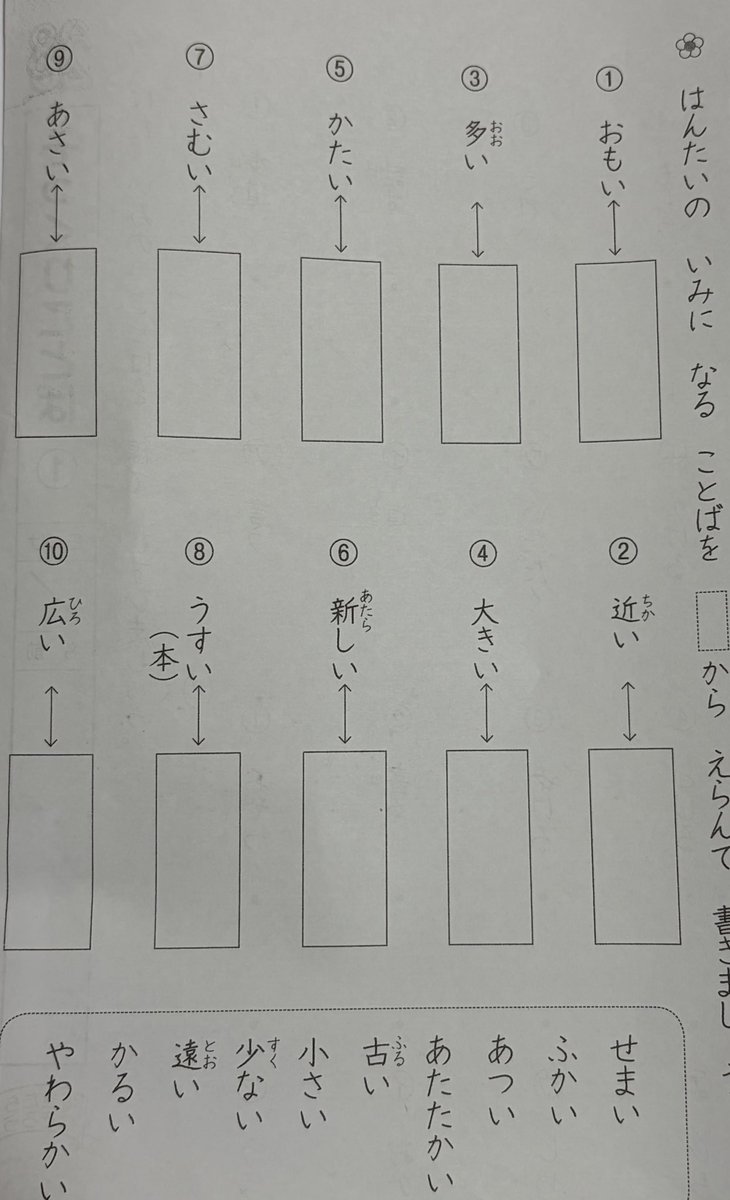 はんたいの いみに なる ことばを から えらんで 書きまし
① おもい
② 近い
ちか
③ 多い
おお
④ 大きい
⑤ かたい
⑥ 新しい
あたら
⑦ さむい
⑧ うすい
(本)
⑨ あさい
⑩ 広い
ひろ
せまい
ふかい
あつい
あたたかい
古い
ふる
小さい
少ない
すく
遠い
とお
かるい
やわらかい